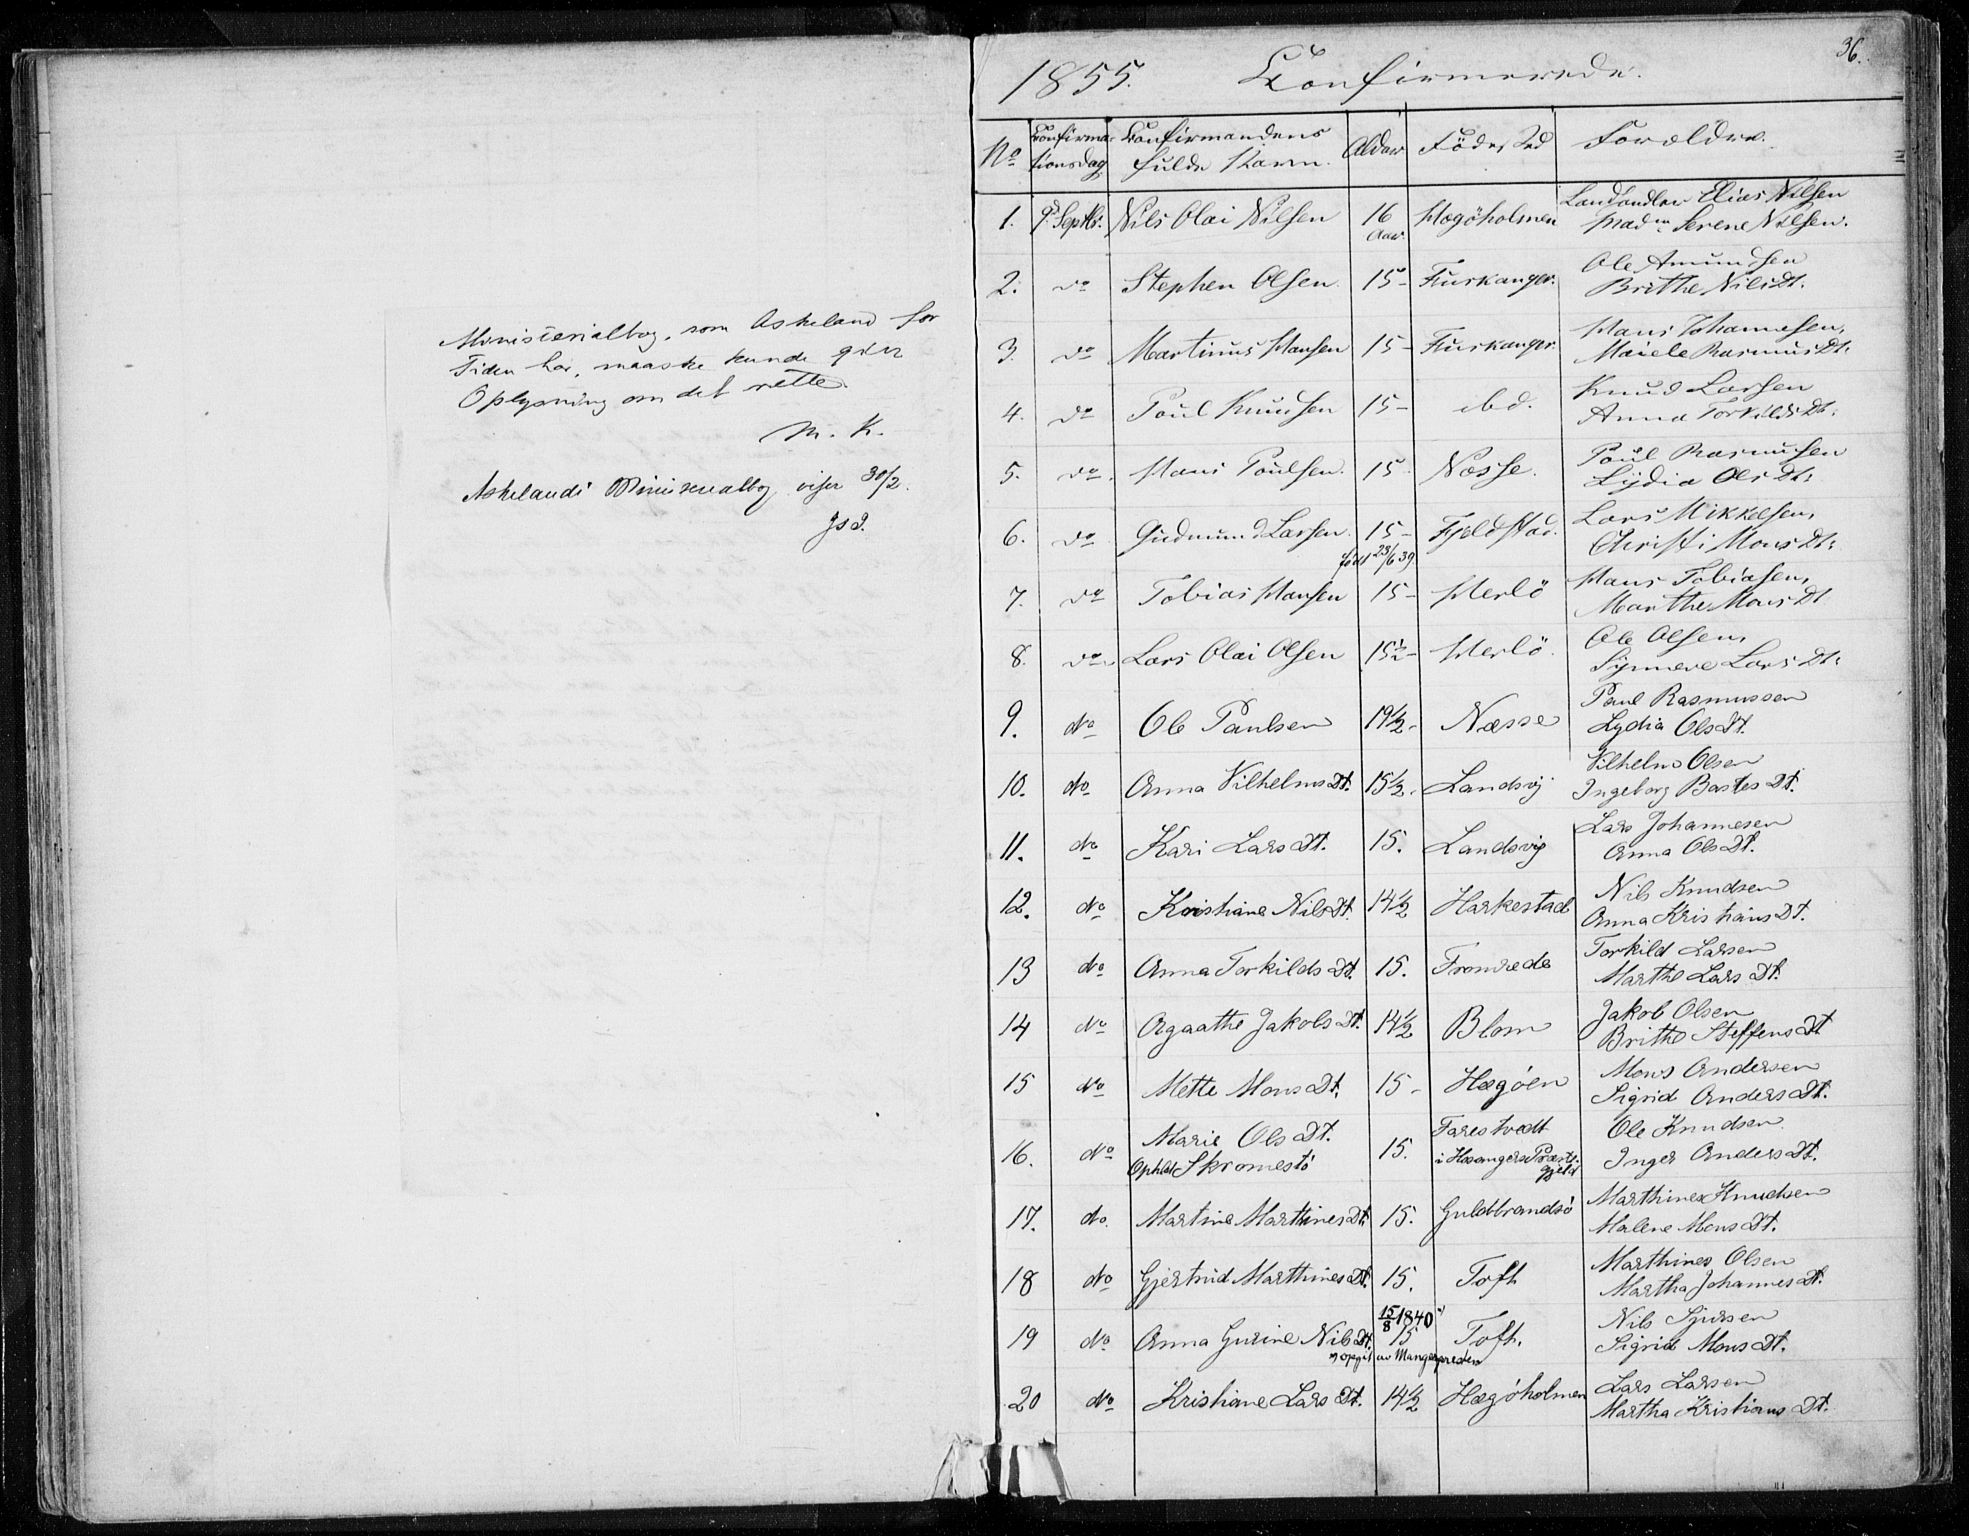 Ministerialbog, som Askeland for
Tiden har, maaske kunde give
Oplysning om det rette.
M. K.
Askelands Ministerialbog viser 30/2.
36.
1855. Confirmerede.
No Confirma- Confirmandens Alder Födested Forældre.
tionsdag. fulde Navn.
1. 9d Septbr. Nils Olai Nilsen 16 Hægöholmen Landhandler Elias Nilsen
Aar. Madm. Serene Nilsen.
2. do Stephen Olsen 15- Huskanger. Ole Amundsen
Brithe Nilsdt.
3. do Martinus Hansen 15- Huskanger. Hans Johannesen,
Maiele Rasmusdt.
4. do Poul Knudsen 15- ibd. Knud Larsen
Anna Torkildsdt.
5. do. Hans Poulsen. 15. Næsse. Poul Rasmusen
Lydia Olsdt.
6. do Gudmund Larsen. 15- Fjeldstad. Lars Mikkelsen,
født 23/6 39. Christi Monsdt.
7. do Tobias Hansen 15- Herlö Hans Tobiasen,
Marthe Monsdt
8. do Lars Olai Olsen 15½- Herlö. Ole Olsen,
Synneve Larsdt.
9. do Ole Paulsen 19½- Næsse Paul Rasmussen
Lydia Olsdt.
10. do Anna Vilhelmsdt. 15½. Landsvig Vilhelm Olsen
Ingeborg Bastesdt.
11. do Kari Larsdt. 15. Landsvig Lars Johannesen
Anna Olsdt.
12. do Kristiane Nilsdt. 14½ Harkestad Nils Knudsen
Anna Kristiansdt.
13 do Anna Torkildsdt. 15. Fromrede Torkild Larsen
Marthe Larsdt.
14 do Agaathe Jakobsdt. 14½ Blom Jakob Olsen
Brithe Steffensdt
15 do Mette Monsdt. 15- Hægöen Mons Andersen
Sigrid Andersdt.
16. do Marie Olsdt. 15. Farestvedt Ole Knudsen.
Ophld Skromestö i Hosangers Præste- Inger Andersdt.
gjeld
17. do. Martine Marthinesdt. 15. Guldbrandsö Marthines Knudsen
Malene Monsdt.
18 do Gjertrud Marthinesdt. 15. Toft Marthines Olsen
Martha Johannesdt.
15/8 1840 *)
19 do Anna Gurine Nilsdt. 15 Toft. Nils Sjursen
*) opgit av Mangerpresten Sigrid Monsdt.
20 do Kristiane Larsdt. 14½ Hægöholmen Lars Larsen
Martha Kristiansdt.